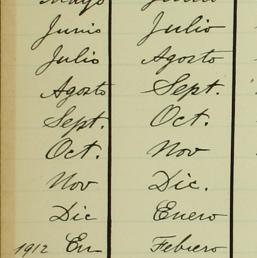 Mayo Junio
Junio Julio
Julio Agosto
Agosto Sept.
Sept. Oct.
Oct. Nov
Nov Dic.
Dic Enero
1912 En Febrero